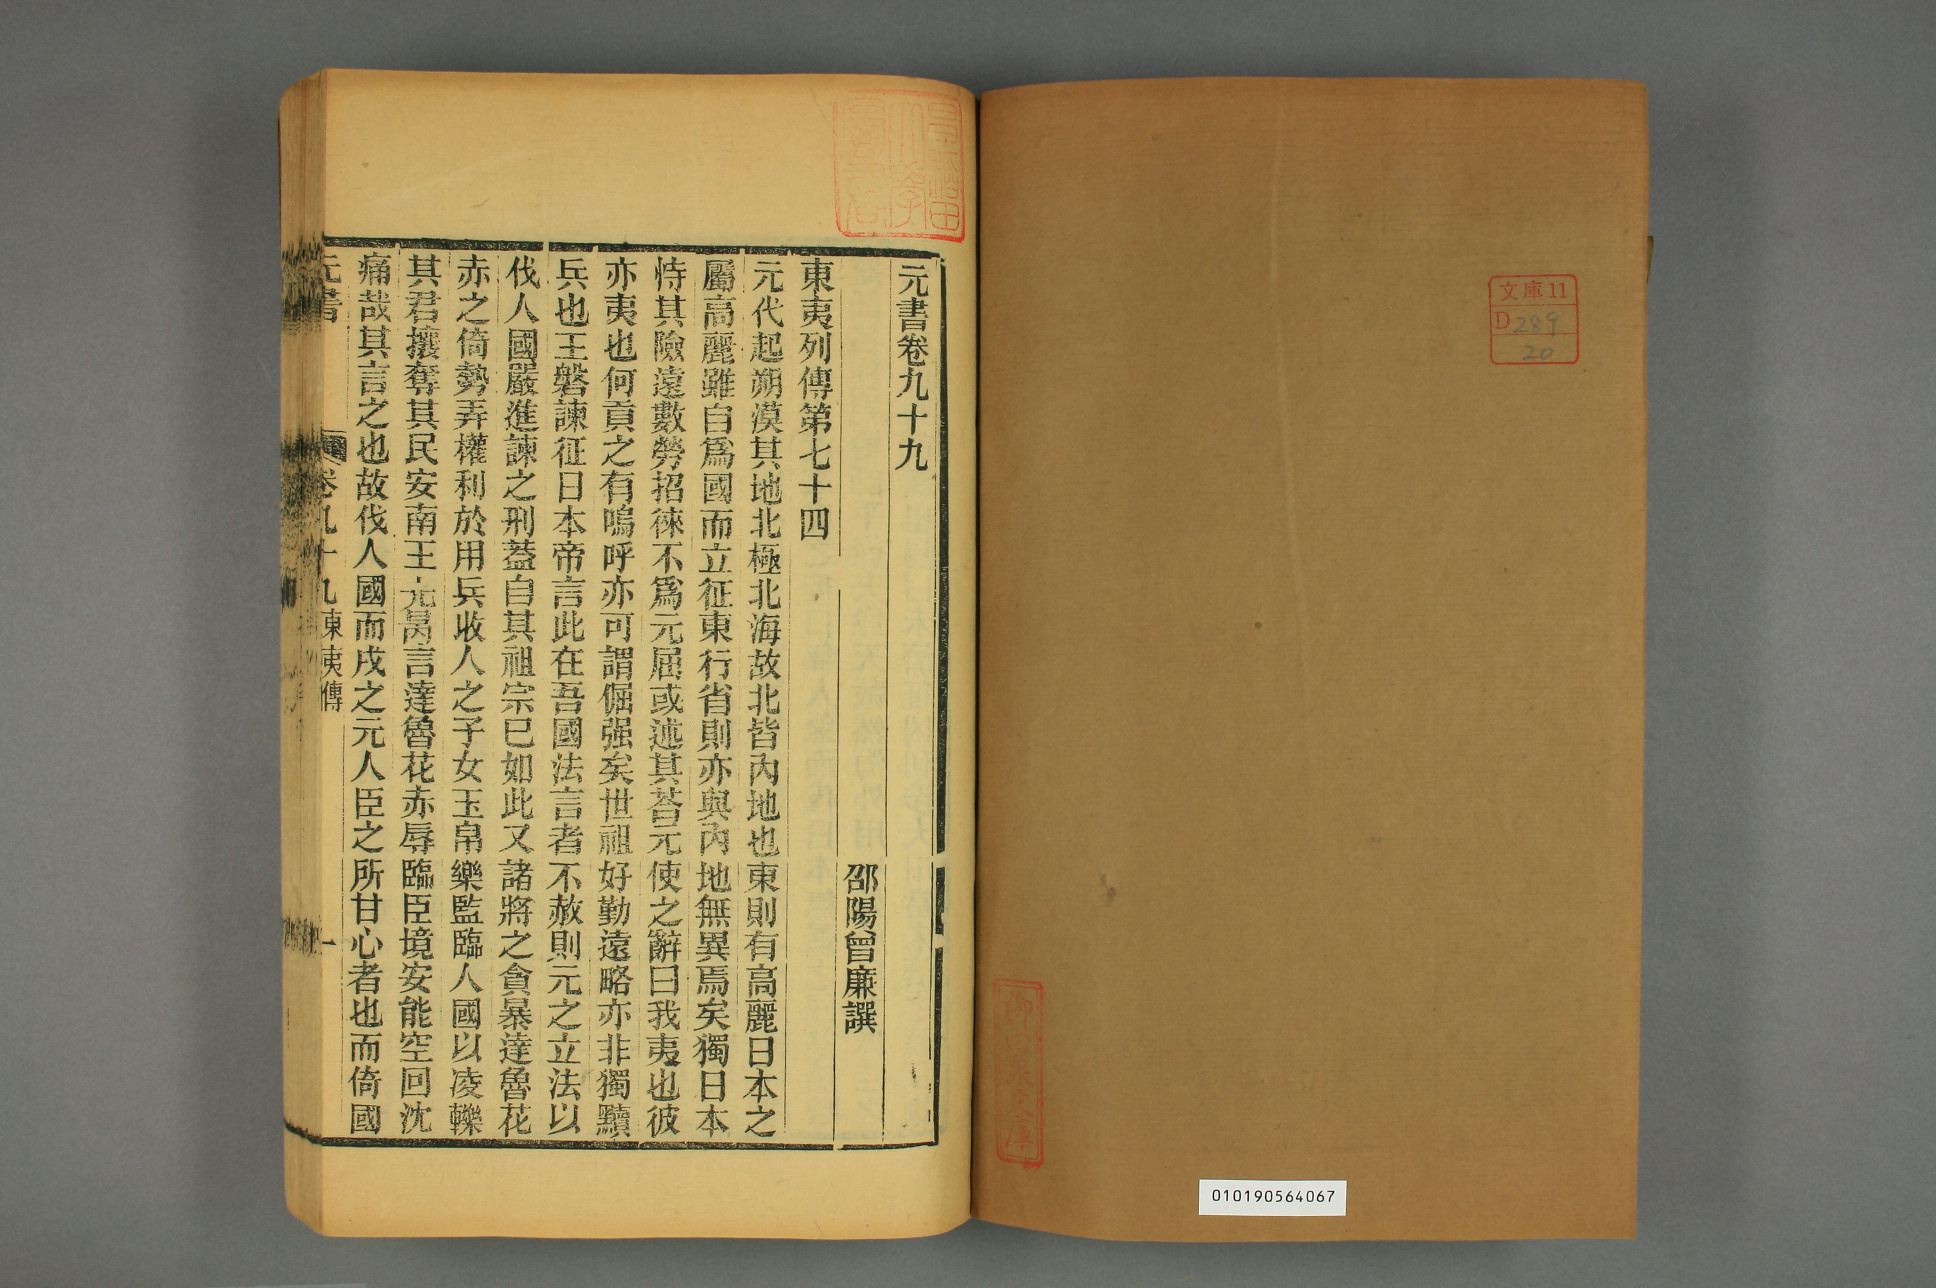 文庫11
D289
20
010190564067
早稲田
大學
圖書
元書卷九十九
邵陽曾廉譔
東夷列傳第七十四
元代起朔漠其地北極北海故北皆內地也東則有高麗日本之
屬高麗雖自爲國而立征東行省則亦與內地無異焉矣獨日本
恃其險遠數勞招徠不爲元屈或述其荅元使之辭曰我夷也彼
亦夷也何貢之有嗚呼亦可謂倔强矣世祖好勤遠略亦非獨黷
兵也王磐諫征日本帝言此在吾國法言者不赦則元之立法以
伐人國嚴進諫之刑蓋自其祖宗已如此又諸將之貪暴達魯花
赤之倚勢弄權利於用兵收人之子女玉帛樂監臨人國以凌轢
其君攘奪其民安南王日烜言達魯花赤辱臨臣境安能空回沈
痛哉其言之也故伐人國而戍之元人臣之所甘心者也而倚國
元書 卷九十九東夷傳 一